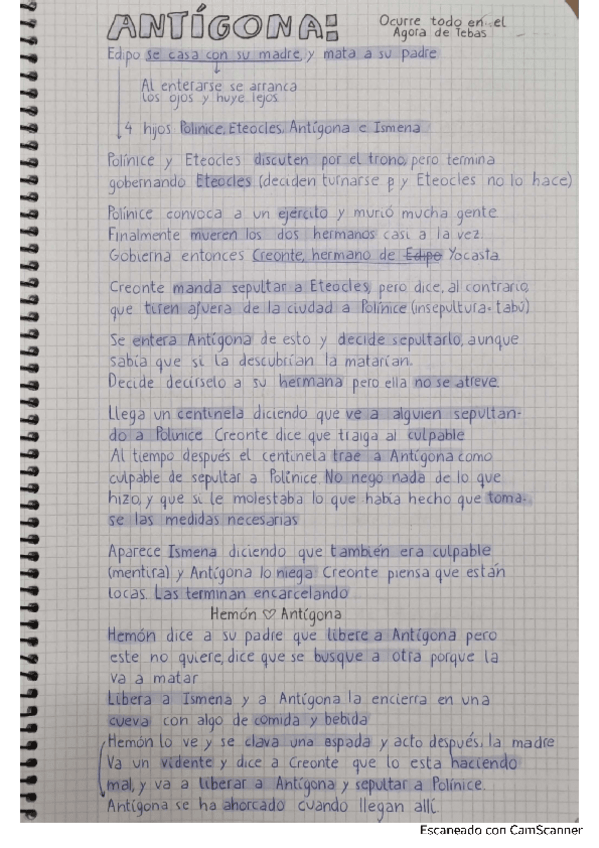 ANTÍGONA:
Ocurre todo en el
Agora de Tebas
Edipo se casa con su madre, y mata a su padre
Al enterarse se arranca
los ojos y huye lejos
4 hijos Polinice, Eteocles, Antígona e Ismena
Polínice y Eteocles discuten por el trono, pero termina
gobernando Eteocles (deciden turnarse p y Eteocles no lo hace)
Polínice convoca a un ejército y murió mucha gente
Finalmente mueren los dos hermanos casi a la vez.
Gobierna entonces Creonte, hermano de Edipo Yocasta.
Creonte manda sepultar a Eteocles, pero dice, al contrario,
que tiren afuera de la ciudad a Polínice (insepultura· tabú)
Se entera Antígona de esto y decide sepultarlo, aunque
sabía que si la descubrían la matarían.
Decide decírselo a su hermana pero ella no se atreve.
Llega un centinela diciendo que ve a alguien sepultan-
do a Polinice Creonte dice que traiga al culpable
Al tiempo después el centinela trae a Antígona como
culpable de sepultar a Polínice. No negó nada de lo que
hizo, y que si le molestaba lo que había hecho que toma-
se las medidas necesarias
Aparece Ismena diciendo que también era culpable
(mentira) y Antígona lo niega Creonte piensa que están
locas. Las terminan encarcelando
Hemón ♡ Antígona
Hemón dice a su padre que libere a Antígona pero
este no quiere, dice que se busque a otra porque la
va a matar
Libera a Ismena y a Antígona la encierra en una
cueva con algo de comida y bebida
Hemón lo ve y se clava una espada y acto después, la madre
Va un vidente y dice a Creonte que lo esta haciendo
mal, y va a liberar a Antígona y sepultar a Polínice.
Antígona se ha ahorcado cuando llegan allí.
Escaneado con CamScanner